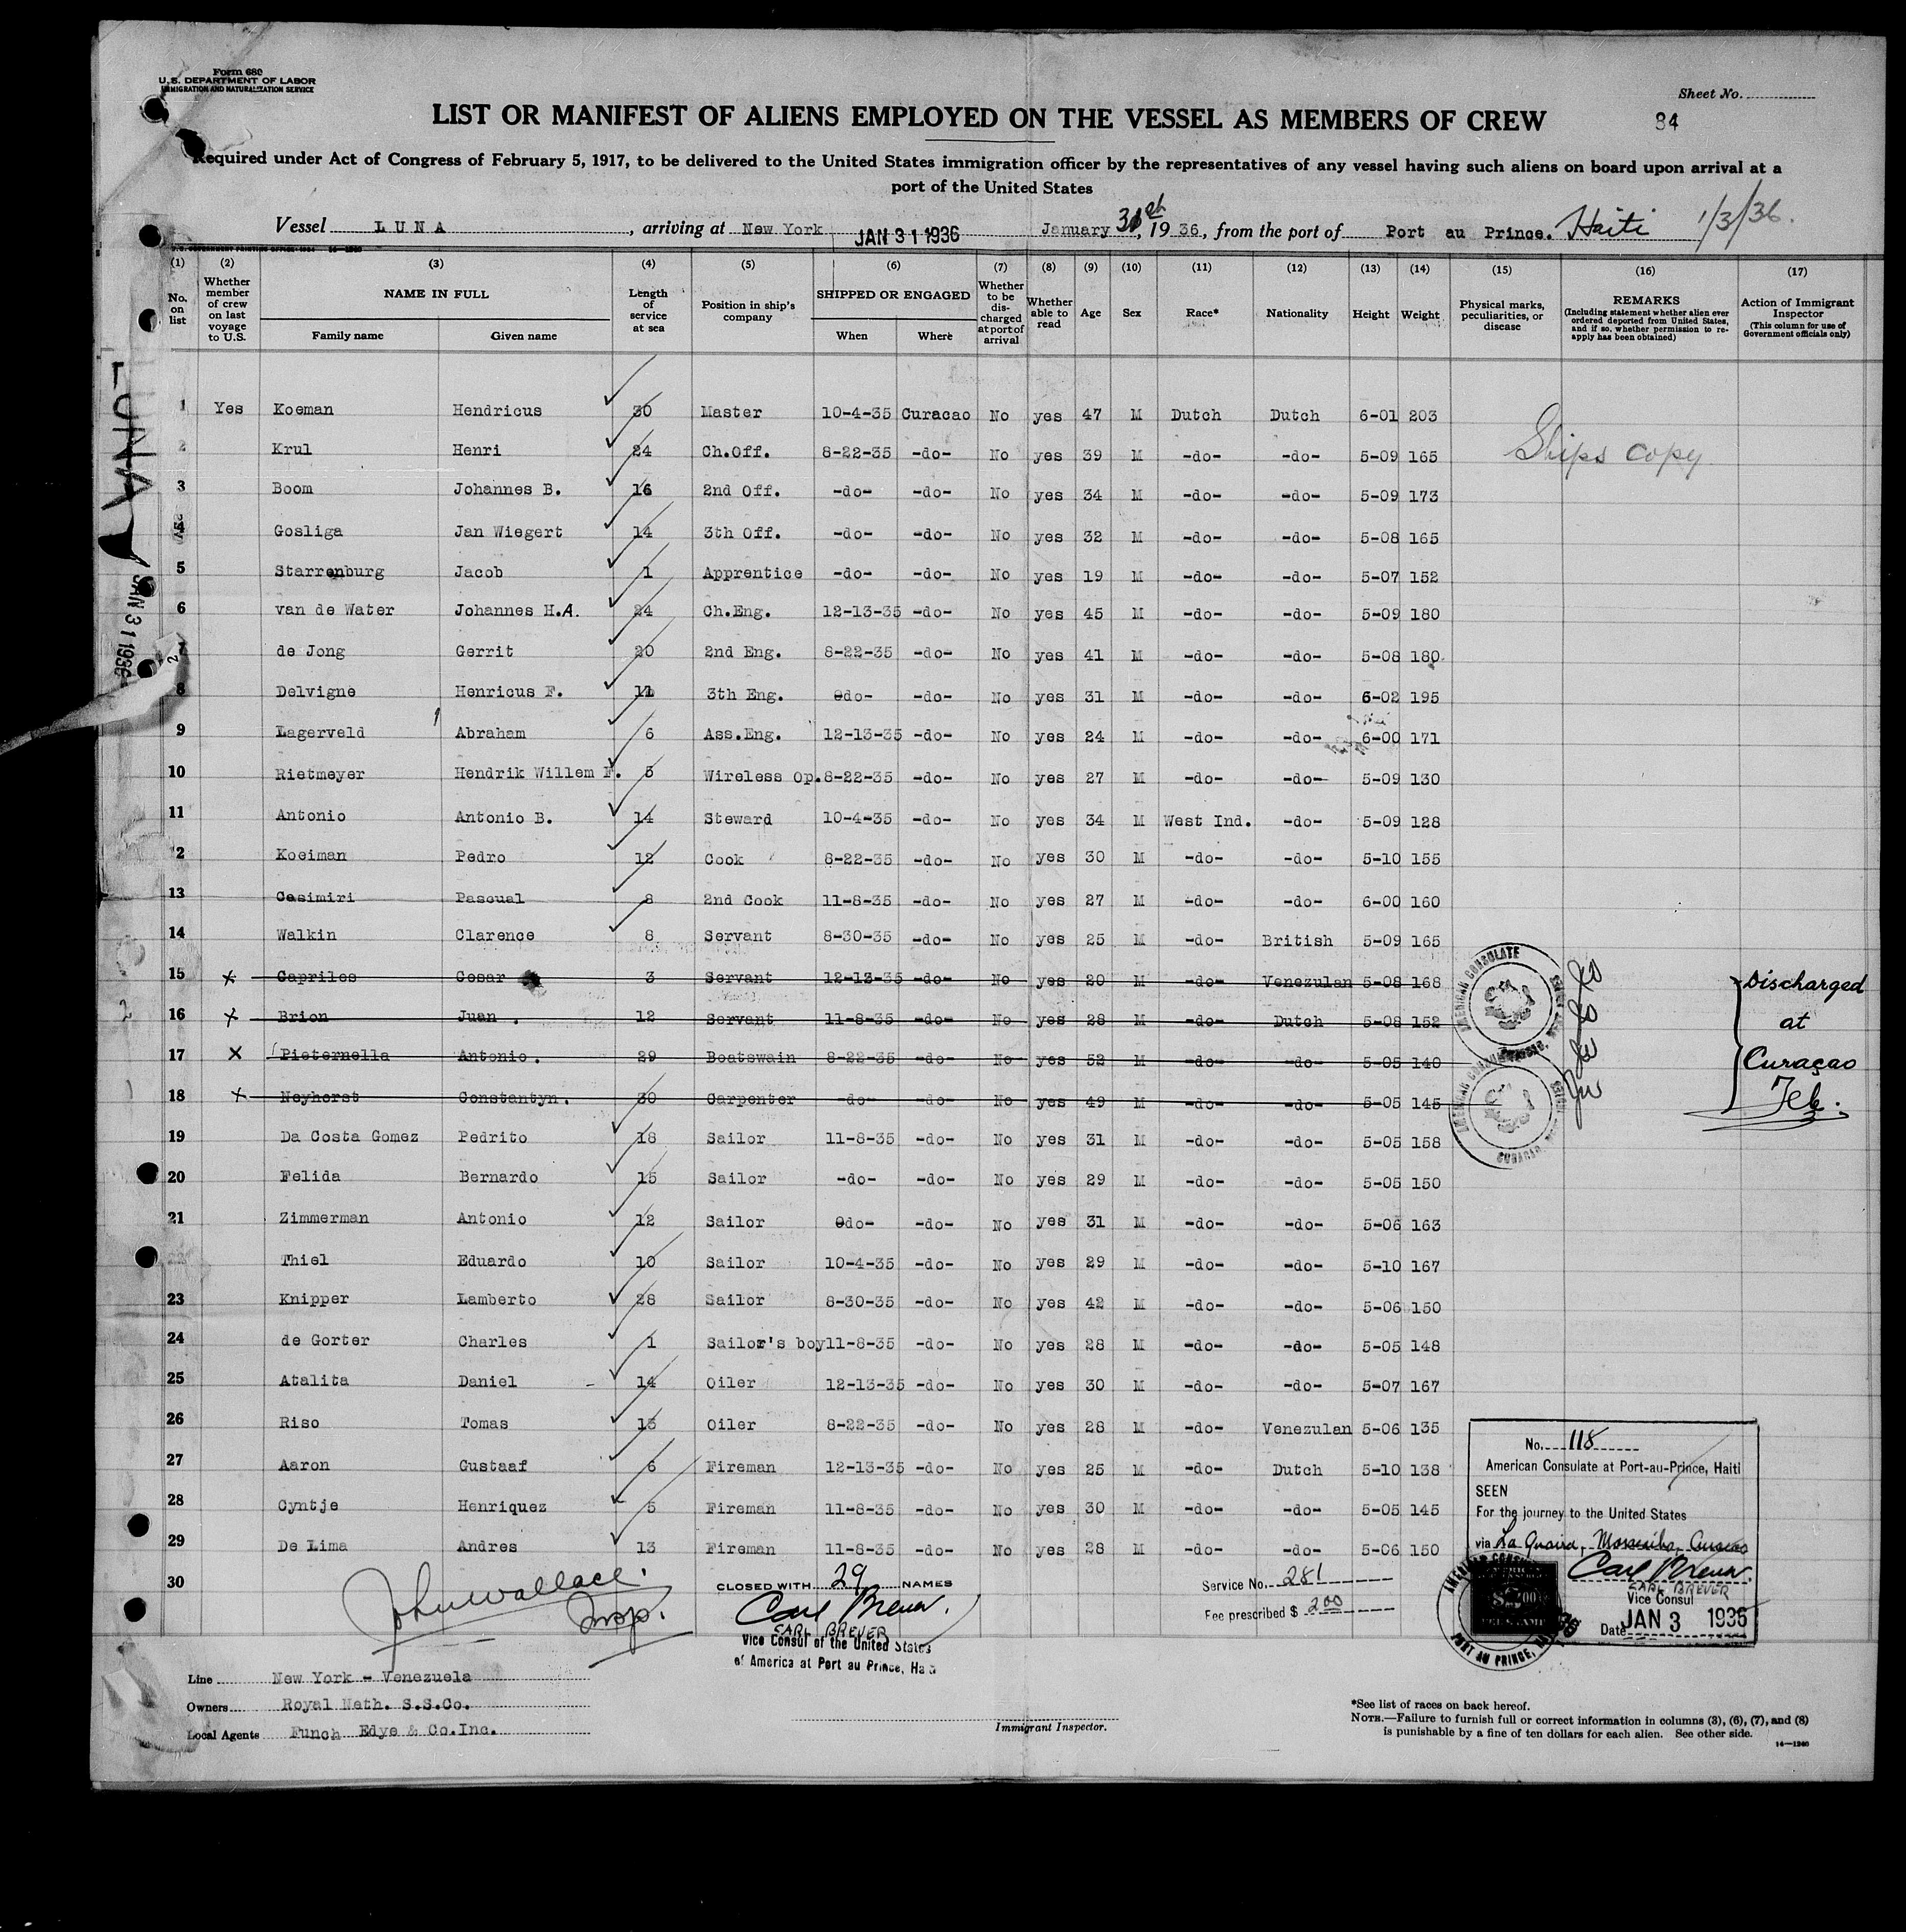 Form 680
U. S. DEPARTMENT OF LABOR
IMMIGRATION AND NATURALIZATION SERVICE
Sheet No.
34
LIST OR MANIFEST OF ALIENS EMPLOYED ON THE VESSEL AS MEMBERS OF CREW
Required under Act of Congress of February 5, 1917, to be delivered to the United States immigration officer by the representatives of any vessel having such aliens on board upon arrival at a
port of the United States
Vessel LUNA, arriving at New York JAN 31 1936 January 31th, 1936, from the port of Port au Prince. Haiti 1/3/36.
(1) (2) (3) (4) (5) (6) (7) (8) (9) (10) (11) (12) (13) (14) (15) (16) (17)
No. on list
Whether member of crew on last voyage to U.S.
NAME IN FULL
Family name
Given name
Length of service at sea
Position in ship's company
SHIPPED OR ENGAGED
When
Where
Whether to be discharged at port of arrival
Whether able to read
Age
Sex
Race*
Nationality
Height
Weight
Physical marks, peculiarities, or disease
REMARKS
(Including statement whether alien ever ordered deported from United States, and if so, whether permission to re-apply has been obtained)
Action of Immigrant Inspector
(This column for use of Government officials only)
1 Yes Koeman Hendricus 30 Master 10-4-35 Curacao No yes 47 M Dutch Dutch 6-01 203
2 Krul Henri 24 Ch.Off. 8-22-35 -do- No yes 39 M -do- -do- 5-09 165
Ships copy
3 Boom Johannes B. 16 2nd Off. -do- -do- No yes 34 M -do- -do- 5-09 173
4 Gosliga Jan Wiegert 14 3th Off. -do- -do- No yes 32 M -do- -do- 5-08 165
5 Starrenburg Jacob 1 Apprentice -do- -do- No yes 19 M -do- -do- 5-07 152
6 van de Water Johannes H.A. 24 Ch.Eng. 12-13-35 -do- No yes 45 M -do- -do- 5-09 180
7 de Jong Gerrit 20 2nd Eng. 8-22-35 -do- No yes 41 M -do- -do- 5-08 180
8 Delvigne Henricus F. 11 3th Eng. -do- -do- No yes 31 M -do- -do- 6-02 195
9 Lagerveld Abraham 6 Ass.Eng. 12-13-35 -do- No yes 24 M -do- -do- 6-00 171
10 Rietmeyer Hendrik Willem F. 5 Wireless Op. 8-22-35 -do- No yes 27 M -do- -do- 5-09 130
11 Antonio Antonio B. 14 Steward 10-4-35 -do- No yes 34 M West Ind. -do- 5-09 128
12 Koeiman Pedro 12 Cook 8-22-35 -do- No yes 30 M -do- -do- 5-10 155
13 Casimiri Pascual 8 2nd Cook 11-8-35 -do- No yes 27 M -do- -do- 6-00 160
14 Walkin Clarence 8 Servant 8-30-35 -do- No yes 25 M -do- British 5-09 165
15 x Capriles Cesar 3 Servant 12-13-35 -do- No yes 20 M -do- Venezulan 5-08 168
16 x Brion Juan . 12 Servant 11-8-35 -do- No yes 28 M -do- Dutch 5-08 152
17 x Pieternella Antonio. 29 Boatswain 8-22-35 -do- No yes 52 M -do- -do- 5-05 140
18 x Neyhorst Constantyn. 30 Carpenter -do- -do- No yes 49 M -do- -do- 5-05 145
Discharged
at
Curaçao
AMERICAN CONSULATE
AMERICAN CONSULATE
19 Da Costa Gomez Pedrito 18 Sailor 11-8-35 -do- No yes 31 M -do- -do- 5-05 158
20 Felida Bernardo 15 Sailor -do- -do- No yes 29 M -do- -do- 5-05 150
21 Zimmerman Antonio 12 Sailor -do- -do- No yes 31 M -do- -do- 5-06 163
Thiel Eduardo 10 Sailor 10-4-35 -do- No yes 29 M -do- -do- 5-10 167
23 Knipper Lamberto 28 Sailor 8-30-35 -do- No yes 42 M -do- -do- 5-06 150
24 de Gorter Charles 1 Sailor's boy 11-8-35 -do- No yes 28 M -do- -do- 5-05 148
25 Atalita Daniel 14 Oiler 12-13-35 -do- No yes 30 M -do- -do- 5-07 167
26 Riso Tomas 13 Oiler 8-22-35 -do- No yes 28 M -do- Venezulan 5-06 135
27 Aaron Gustaaf 6 Fireman 12-13-35 -do- No yes 25 M -do- Dutch 5-10 138
28 Cyntje Henriquez 5 Fireman 11-8-35 -do- No yes 30 M -do- -do- 5-05 145
29 De Lima Andres 13 Fireman 11-8-35 -do- No yes 28 M -do- -do- 5-06 150
30
John Wallace.
Insp.
CLOSED WITH 29 NAMES
Carl Brever.
CARL BREVER
Vice Consul of the United States
of America at Port au Prince, Haiti
Service No. 281
Fee prescribed $ 2.00
No. 118
American Consulate at Port-au-Prince, Haiti
SEEN
For the journey to the United States
via La Guaira, Curacao
Carl Brever.
CARL BREVER
Vice Consul
Date JAN 3 1936
PORT AU PRINCE,
LUNA
JAN 31 1936
Line New York - Venezuela
Owners Royal Neth. S.S.Co.
Local Agents Funch Edye & Co.Inc.
Immigrant Inspector.
*See list of races on back hereof.
NOTE.—Failure to furnish full or correct information in columns (3), (6), (7), and (8)
is punishable by a fine of ten dollars for each alien. See other side.
14—1240